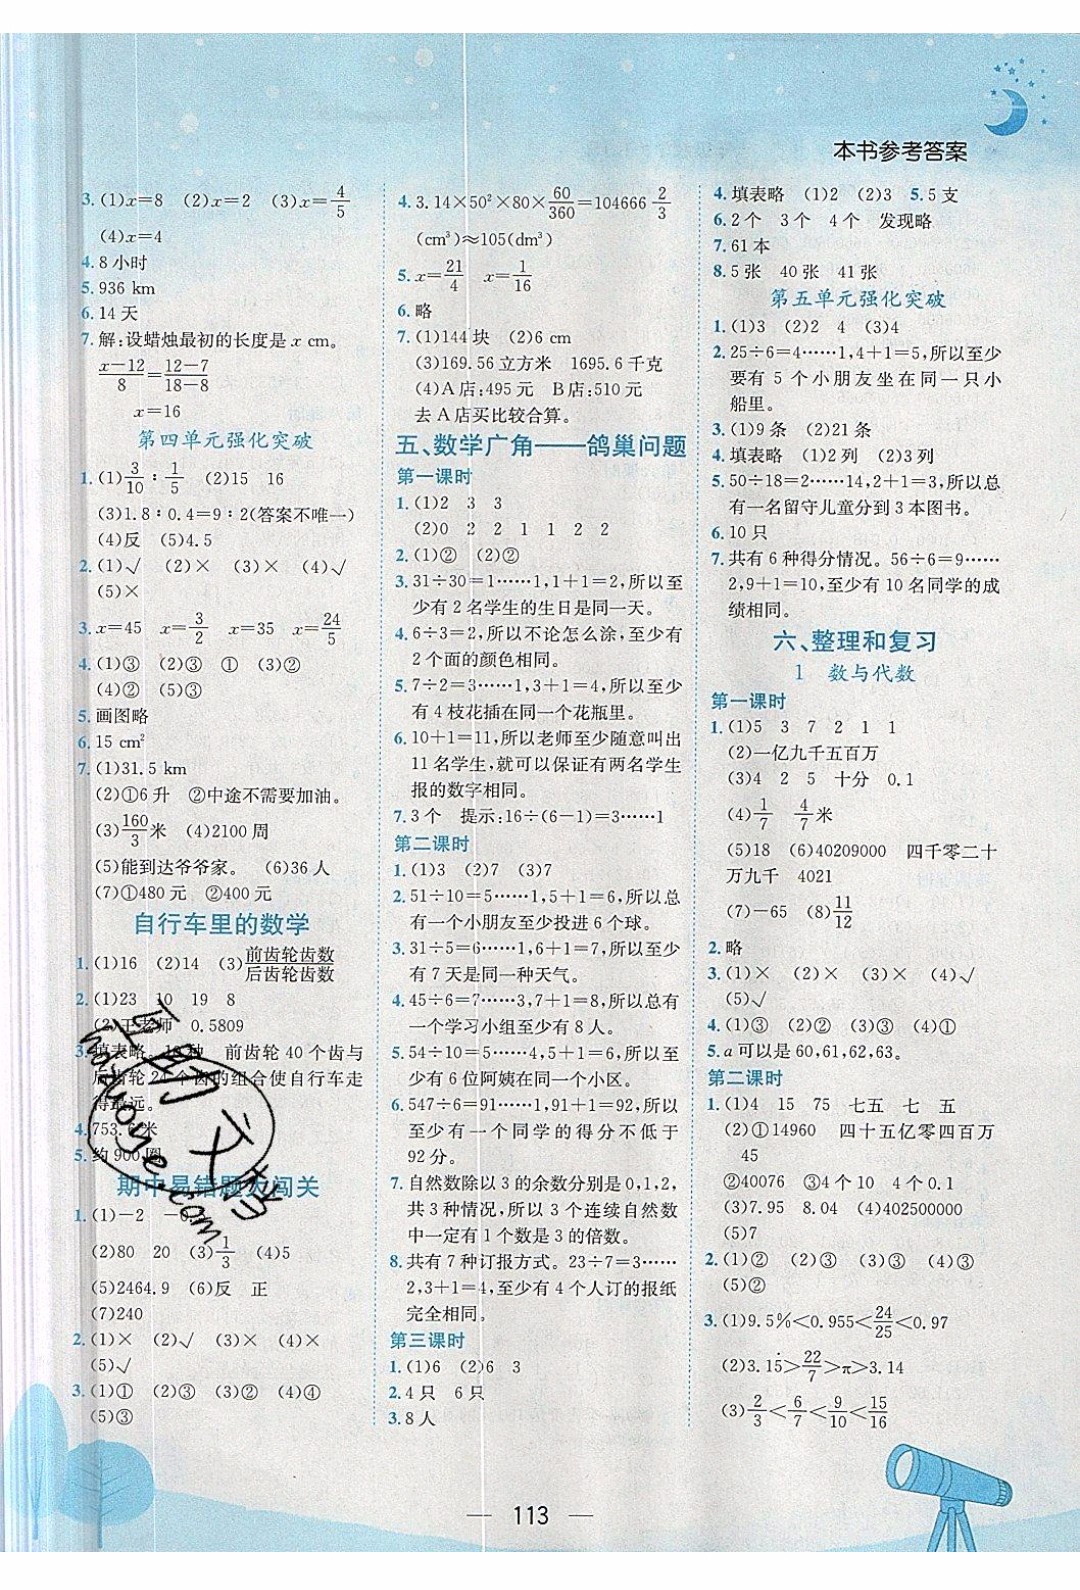 本书参考答案
3.(1)x=8 (2)x=2 (3)x=4/5
(4)x=4
4.8小时
5.936 km
6.14天
7.解:设蜡烛最初的长度是x cm。
(x-12)/8=(12-7)/(18-8)
x=16
第四单元强化突破
1.(1)3/10∶1/5 (2)15 16
(3)1.8∶0.4=9∶2(答案不唯一)
(4)反 (5)4.5
2.(1)√ (2)× (3)× (4)√
(5)×
3.x=45 x=3/2 x=35 x=24/5
4.(1)③ (2)③ ① (3)②
(4)② (5)③
5.画图略
6.15 cm²
7.(1)31.5 km
(2)①6升 ②中途不需要加油。
(3)160/3米 (4)2100周
(5)能到达爷爷家。 (6)36人
(7)①480元 ②400元
自行车里的数学
1.(1)16 (2)14 (3)前齿轮齿数/后齿轮齿数
2.(1)23 10 19 8
(2)王老师 0.5809
3.填表略。 种 前齿轮40个齿与
后齿轮24个齿的组合使自行车走
得最远。
4.753.6米
5.约900圈
期中易错题大闯关
1.(1)-2
(2)80 20 (3)1/3 (4)5
(5)2464.9 (6)反 正
(7)240
2.(1)× (2)√ (3)× (4)×
(5)√
3.(1)① (2)③ (3)② (4)④
(5)③
4.3.14×50²×80×60/360=104666 2/3
(cm³)≈105(dm³)
5.x=21/4 x=1/16
6.略
7.(1)144块 (2)6 cm
(3)169.56立方米 1695.6千克
(4)A店:495元 B店:510元
去A店买比较合算。
五、数学广角——鸽巢问题
第一课时
1.(1)2 3 3
(2)0 2 2 1 1 2 2
2.(1)② (2)②
3.31÷30=1……1,1+1=2,所以至
少有2名学生的生日是同一天。
4.6÷3=2,所以不论怎么涂,至少有
2个面的颜色相同。
5.7÷2=3……1,3+1=4,所以至少
有4枝花插在同一个花瓶里。
6.10+1=11,所以老师至少随意叫出
11名学生,就可以保证有两名学生
报的数字相同。
7.3个 提示:16÷(6-1)=3……1
第二课时
1.(1)3 (2)7 (3)7
2.51÷10=5……1,5+1=6,所以总
有一个小朋友至少投进6个球。
3.31÷5=6……1,6+1=7,所以至少
有7天是同一种天气。
4.45÷6=7……3,7+1=8,所以总有
一个学习小组至少有8人。
5.54÷10=5……4,5+1=6,所以至少
有6位阿姨在同一个小区。
6.547÷6=91……1,91+1=92,所以
至少有一个同学的得分不低于
92分。
7.自然数除以3的余数分别是0,1,2,
共3种情况,所以3个连续自然数
中一定有1个数是3的倍数。
8.共有7种订报方式。23÷7=3……
2,3+1=4,至少有4个人订的报纸
完全相同。
第三课时
1.(1)6 (2)6 3
2.4只 6只
3.8人
4.填表略 (1)2 (2)3 5.5支
6.2个 3个 4个 发现略
7.61本
8.5张 40张 41张
第五单元强化突破
1.(1)3 (2)2 4 (3)4
2.25÷6=4……1,4+1=5,所以至少
要有5个小朋友坐在同一只小
船里。
3.(1)9条 (2)21条
4.填表略 (1)2列 (2)3列
5.50÷18=2……14,2+1=3,所以总
有一名留守儿童分到3本图书。
6.10只
7.共有6种得分情况。56÷6=9……
2,9+1=10,至少有10名同学的成
绩相同。
六、整理和复习
1 数与代数
第一课时
1.(1)5 3 7 2 1 1
(2)一亿九千五百万
(3)4 2 5 十分 0.1
(4)1/7 4/7米
(5)18 (6)40209000 四千零二十
万九千 4021
(7)-65 (8)11/12
2.略
3.(1)× (2)× (3)× (4)√
(5)√
4.(1)③ (2)② (3)③ (4)①
5.a可以是60,61,62,63。
第二课时
1.(1)4 15 75 七五 七 五
(2)①14960 四十五亿零四百万
45
②40076 ③4个10 4个0.1
(3)7.95 8.04 (4)402500000
(5)7
2.(1)② (2)③ (3)④ (4)③
(5)②
3.(1)9.5%<0.955<24/25<0.97
(2)3.15>22/7>π>3.14
(3)2/3<6/7<9/10<15/16
113